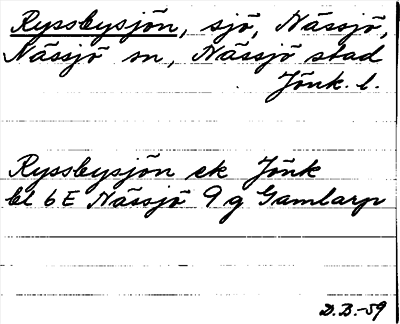 Ryssbysjön, sjö, Nässjö,
Nässjö sn, Nässjö stad
Jönk. l.
Ryssbysjön ek Jönk
bl 6E Nässjö 9 g Gamlarp
D.B.-59